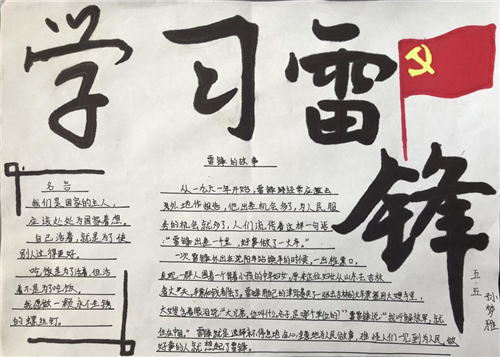 学习雷锋
雷锋的故事
名言
我们是国家的主人，
应该处处为国家着想。
自己活着，就是为了使
别人过得更好。
吃饭是为了活着，但活
着不是为了吃饭。
我愿做一颗永不生锈
的螺丝钉。
从一九六一年开始，雷锋经常应邀去
外地作报告，他出差机会多了，为人民服
务的机会就多了，人们流传着这样一句话：
“雷锋出差一千里，好事做了一火车。”
一次雷锋外出在沈阳车站换车的时候，一出检票口，
发现一群人围着一个背着小孩的中年妇女，原来这位妇女从山东去吉林
看丈夫，车票和钱丢了。雷锋用自己的津贴费买了一张去吉林的火车票塞到大嫂手里，
大嫂含着眼泪说：“大兄弟，你叫什么名字，是哪个单位的？”雷锋说：“我叫解放军，就
住在中国。”雷锋
好事的人就想起了雷锋。
五五 孙梦雅